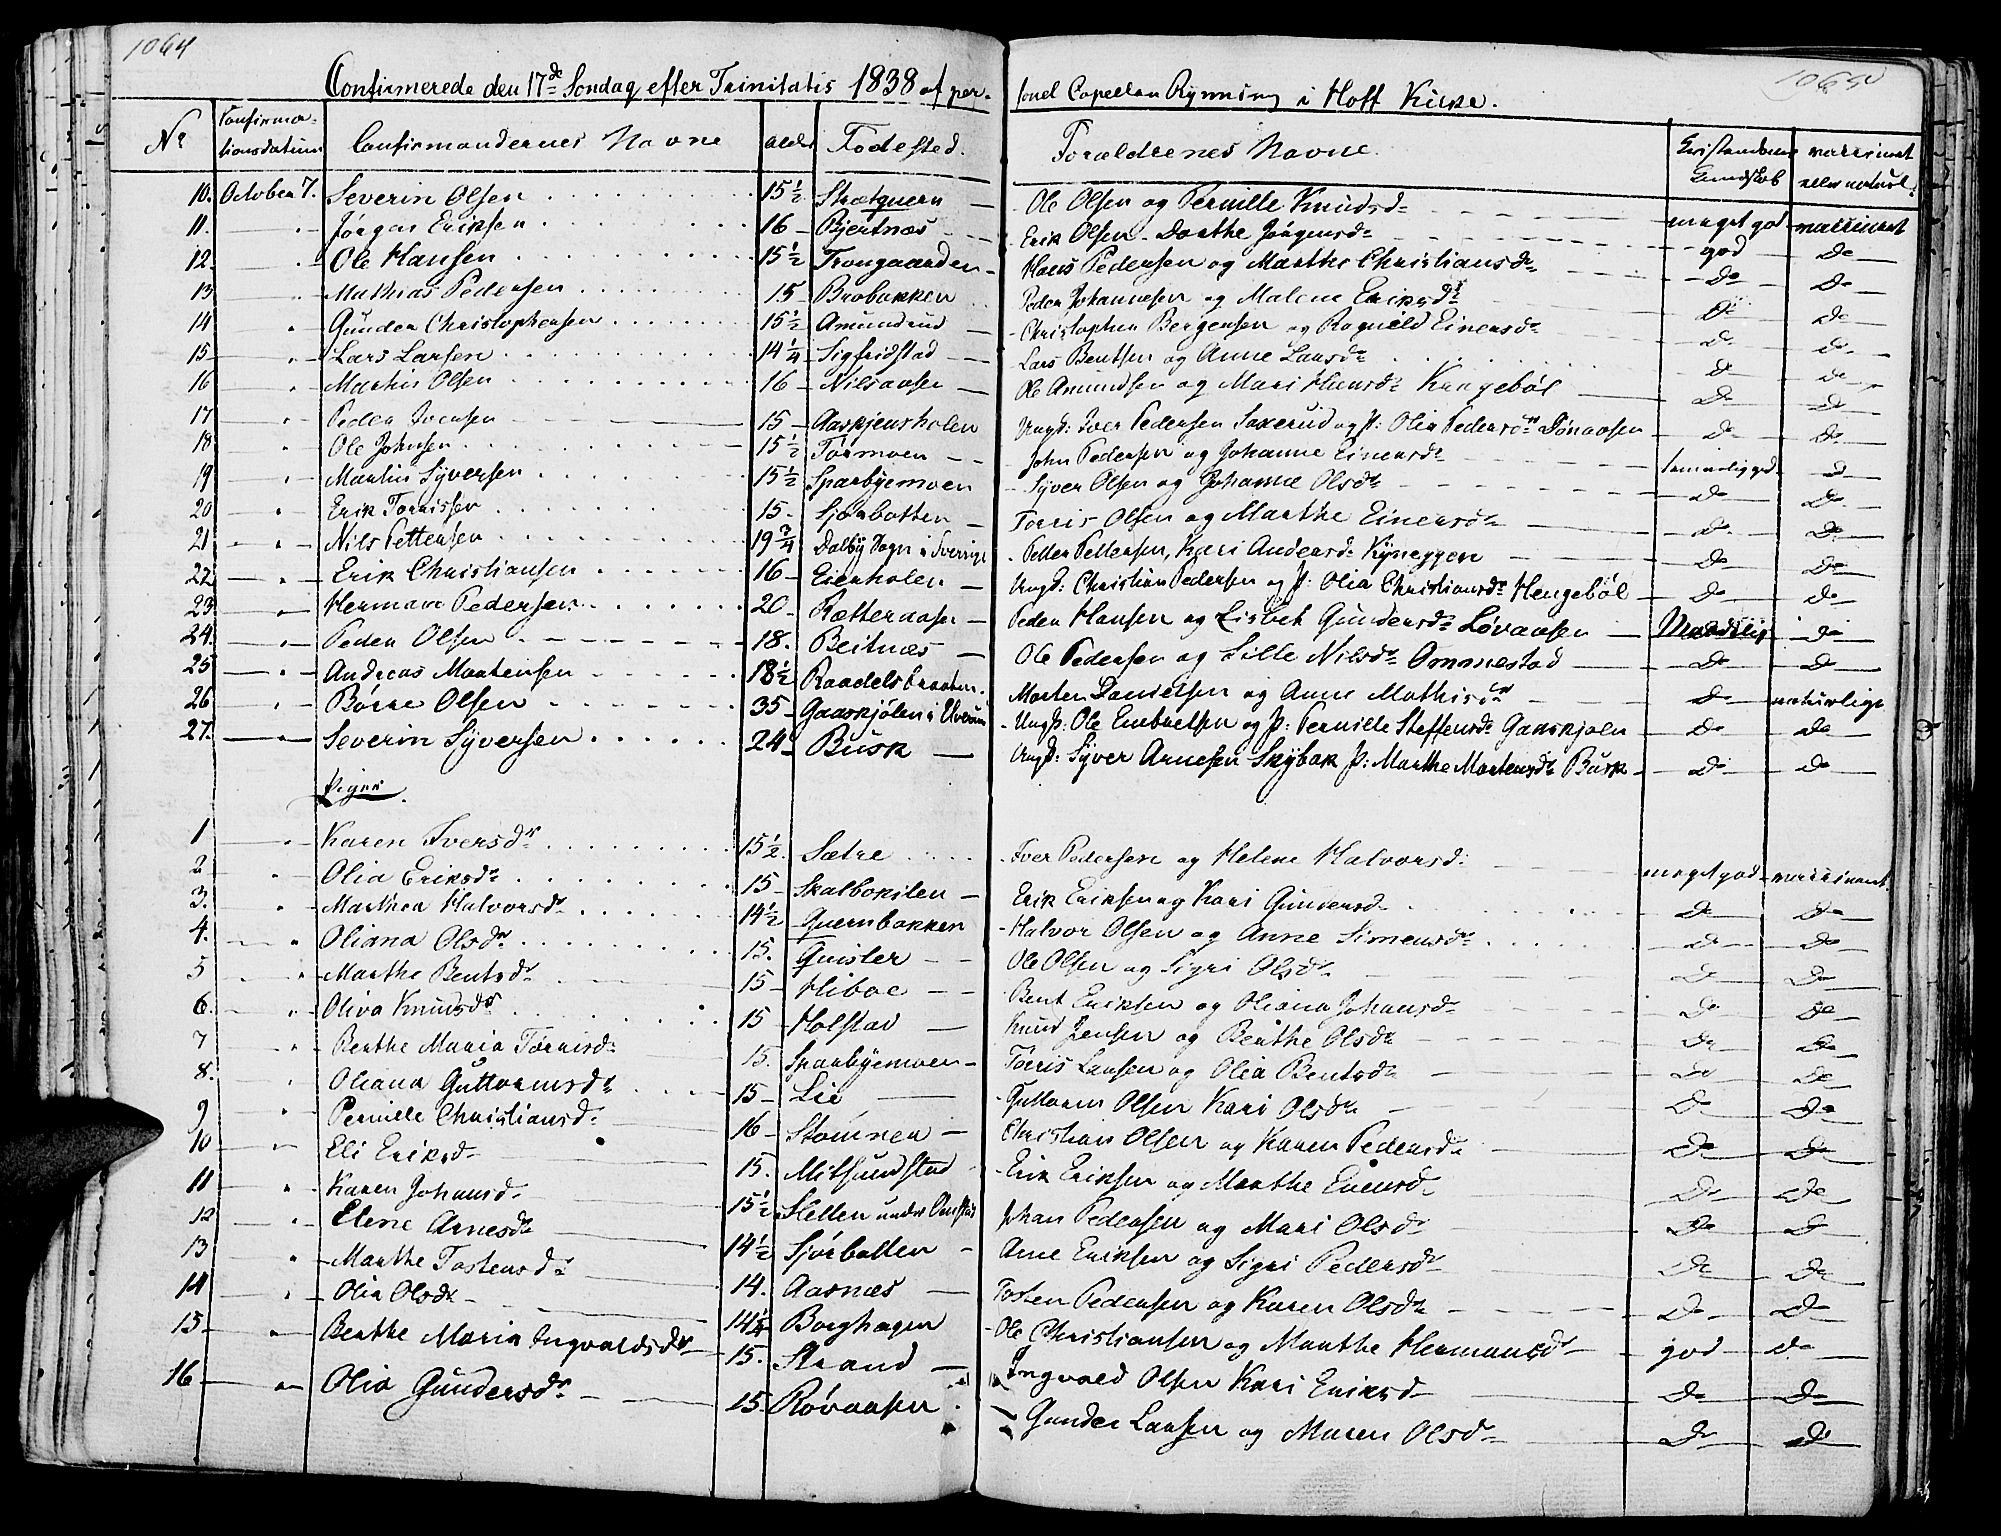 1064
1065
Confirmerede den 17de Søndag efter Trinitatis 1838 af per- sonel Capellan Rynning i Hoff Kirke.
No Confirma-tionsdatum Confirmandernes Navne alder Fødested. Forældrenes Navne. Christendoms Kundskab
10. October 7. Severin Olsen 15½ Strætquern Ole Olsen og Pernille Knudsdr meget god
11. " Jørgen Eriksen 16 Bjertnæs Erik Olsen Dorthe Jørgensdr god Do
12. " Ole Hansen 15½ Trongaarden Hans Pedersen og Marthe Christiansdr Do Do
13 " Mathias Pedersen 15 Brobakken Peder Johannesen og Malene Eriksdr Do Do
14 " Gunder Christophersen 15½ Amundrud Christopher Bergersen og Ragnild Einersdr Do Do
15 " Lars Larsen 14¼ Sigfridstad Lars Bentsen og Anne Larsdr Do Do
16 " Martin Olsen 16 Nilsaasen Ole Amundsen og Mari Hansdr Kragebøl Do Do
17 " Peder Iversen 15 Aaskjersholen Ungk: Iver Pedersen Saxerud og p: Olia Pedersdr Dønaasen Do Do
18 " Ole Johnsen 15½ Tørmoen John Pedersen og Johanne Einersdr temmelig god Do
19 " Martin Syversen 15½ Sparbyemoen Syver Olsen og Johanne Olsdr Do Do
20 " Erik Torrissen 15 Sjørbotten Torris Olsen og Marthe Einersdr Do Do
21 " Nils Pettersen 19¾ Dalby Sogn i Sverrige Petter Pettersen, Kari Andersdr Kyneggen Do Do
22 " Erik Christiansen 16 Eierholen Ungk: Christian Pedersen og p: Olia Christiansdr Hengebøl Do Do
23 " Herman Pedersen 20 Rætteraasen Peder Hansen og Lisbet Gundersdr Løvaasen Maadelig Do
24 " Peder Olsen 18. Beitnæs Ole Pedersen og Lille Nilsdr Ommestad Do Do
25 " Andreas Martensen 18½ Raadelsbraaten Morten Danielsen og Anne Mathisdr Do naturlige
26 " Børre Olsen 35 Gaaskjølen i Elverum Ungk: Ole Embretsen og p: Pernille Steffensdr Gaaskjølen Do Do
27. " Severin Syversen 24 Busk Ungk: Syver Arnesen Skybak p: Marthe Martensdr Busk Do Do
Piger.
1 " Karen Iversdr 15½ Sætre Iver Pedersen og Helene Halvorsd: meget god
2 " Olia Eriksdr 15 Skalbokilen Erik Eriksen og Kari Gundersdr Do Do
3. " Marthea Halvorsdr 14½ Quernbakken Halvor Olsen og Anne Simensdr Do Do
4. " Oliana Olsdr 15. Quisler Ole Olsen og Sigri Olsdr Do Do
5 " Marthe Bentsdr 15 Hiboe Bent Eriksen og Oliana Johansdr Do Do
6. " Oliva Knudsdr 15 Holstad Knud Jensen og Berthe Olsdr Do Do
7 " Berthe Maria Tørrisdr 15. Sparbyemoen Tørris Larsen og Olia Bentsdr Do Do
8. " Oliana Guttormsdr 15 Lie Guttorm Olsen Kari Olsdr Do Do
9 " Pernille Christiansdr 16 Stomner Christian Olsen og Karen Pedersdr Do Do
10 " Eli Eriksdr 15. Mitsundstad Erik Eriksen og Marthe Einersdr Do Do
11 " Karen Johansdr 15½ Sletten under Omstad Johan Pedersen og Mari Olsdr Do Do
12 " Elene Arnesdr 14½ Sjørbotten Arne Eriksen og Sigri Pedersdr Do Do
13 " Marthe Tostensdr 14. Aasnæs Tosten Pedersen og Karen Olsdr Do Do
14 " Olia Olsdr 14¼ Borghagen Ole Christiansen og Marthe Hermansdr god Do
15 " Berthe Maria Ingvaldsdr 15. Strand Ingvald Olsen Kari Eriksdr Do Do
16 " Olia Gundersdr 15. Røvaasen Gunder Larsen og Maren Olsdr Do Do